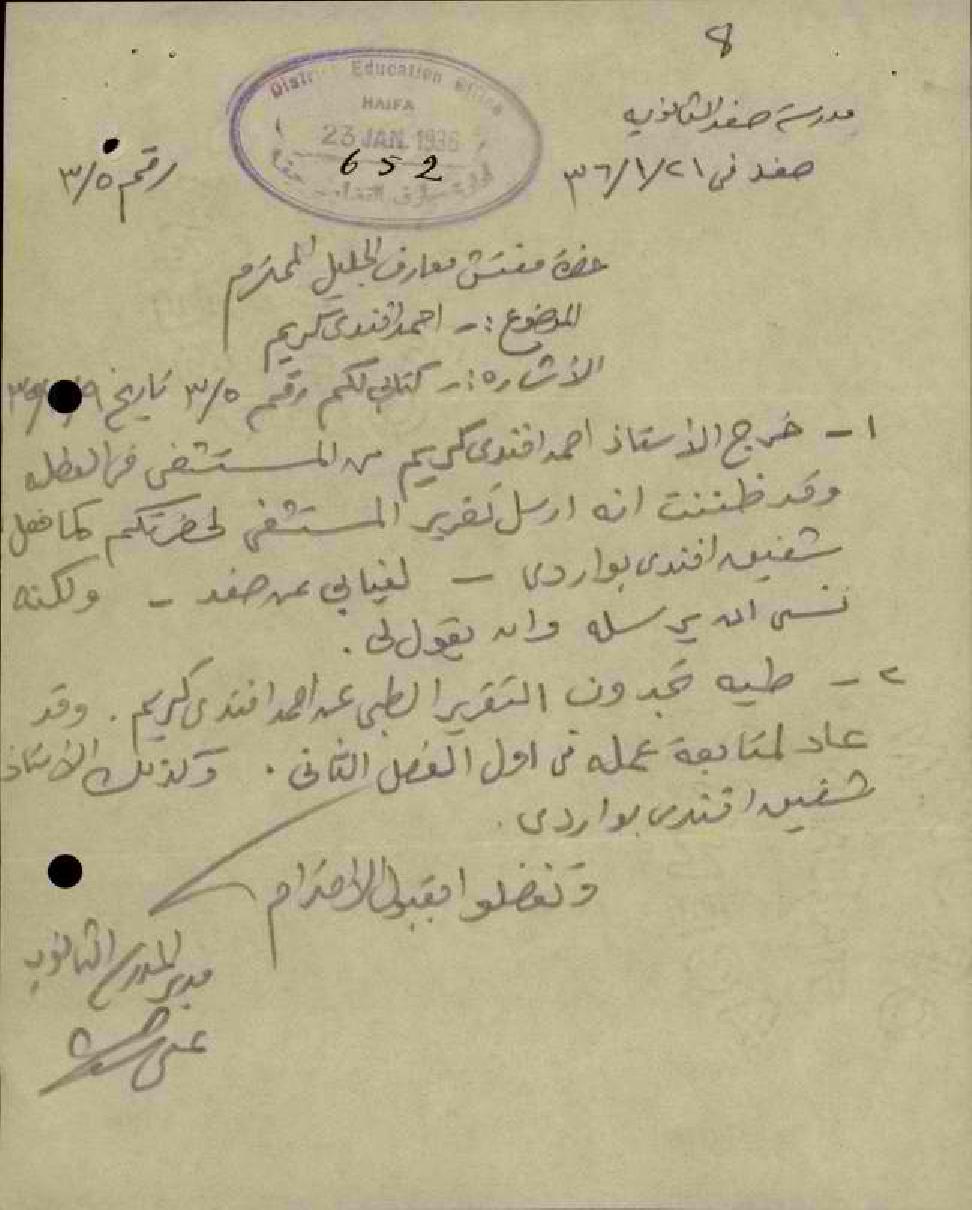 8
مدرسة صفد الثانويه
District Education Office
HAIFA
23 JAN. 1936
652
ادارة معارف
صفد في ٢١/١/٣٦
رقم ٣/٥
حضرة مفتش معارف الجليل المحترم
الموضوع :- احمد افندي كريم
الأشاره :- كتابي لكم رقم ٣/٥ تاريخ
١- خرج الأستاذ احمد افندي كريم من المستشفى في العطله
وقد ظننت انه ارسل تقرير المستشفى لحضرتكم كما فعل
شفيق افندي بواردي - لغيابي عن صفد - ولكنه
نسي ان يرسله وان يقول لي .
٢- طيه تجدون التقرير الطبي عن احمد افندي كريم . وقد
عاد لمتابعة عمله في اول الفصل الثاني . وكذلك الأستاذ
شفيق افندي بواردي .
وتفضلوا بقبول الأحترام
مدير المدرسة الثانويه